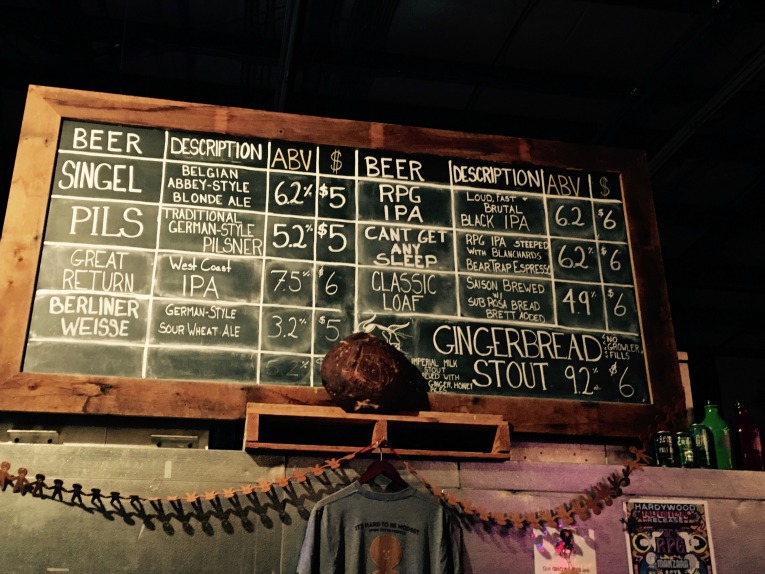 BEER DESCRIPTION ABV $
SINGEL BELGIAN ABBEY-STYLE BLONDE ALE 6.2% $5
PILS TRADITIONAL GERMAN-STYLE PILSNER 5.2% $5
GREAT RETURN West Coast IPA 7.5% $6
BERLINER WEISSE GERMAN-STYLE SOUR WHEAT ALE 3.2% $5
BEER DESCRIPTION ABV $
RPG IPA LOUD, FAST BRUTAL BLACK IPA 6.2 $6
CANT GET ANY SLEEP RPG IPA STEEPED WITH BLANCHARDS BEAR TRAP ESPRESSO 6.2% $6
CLASSIC LOAF SAISON BREWED W/ SUB ROSA BREAD BRETT ADDED 4.9% $6
GINGERBREAD STOUT 9.2% $6
NO GROWLER FILLS
IMPERIAL MILK
STOUT
WITH
GINGER, HONEY
IT'S HARD TO BE MODEST
HARDYWOOD
RELEASE
RPG